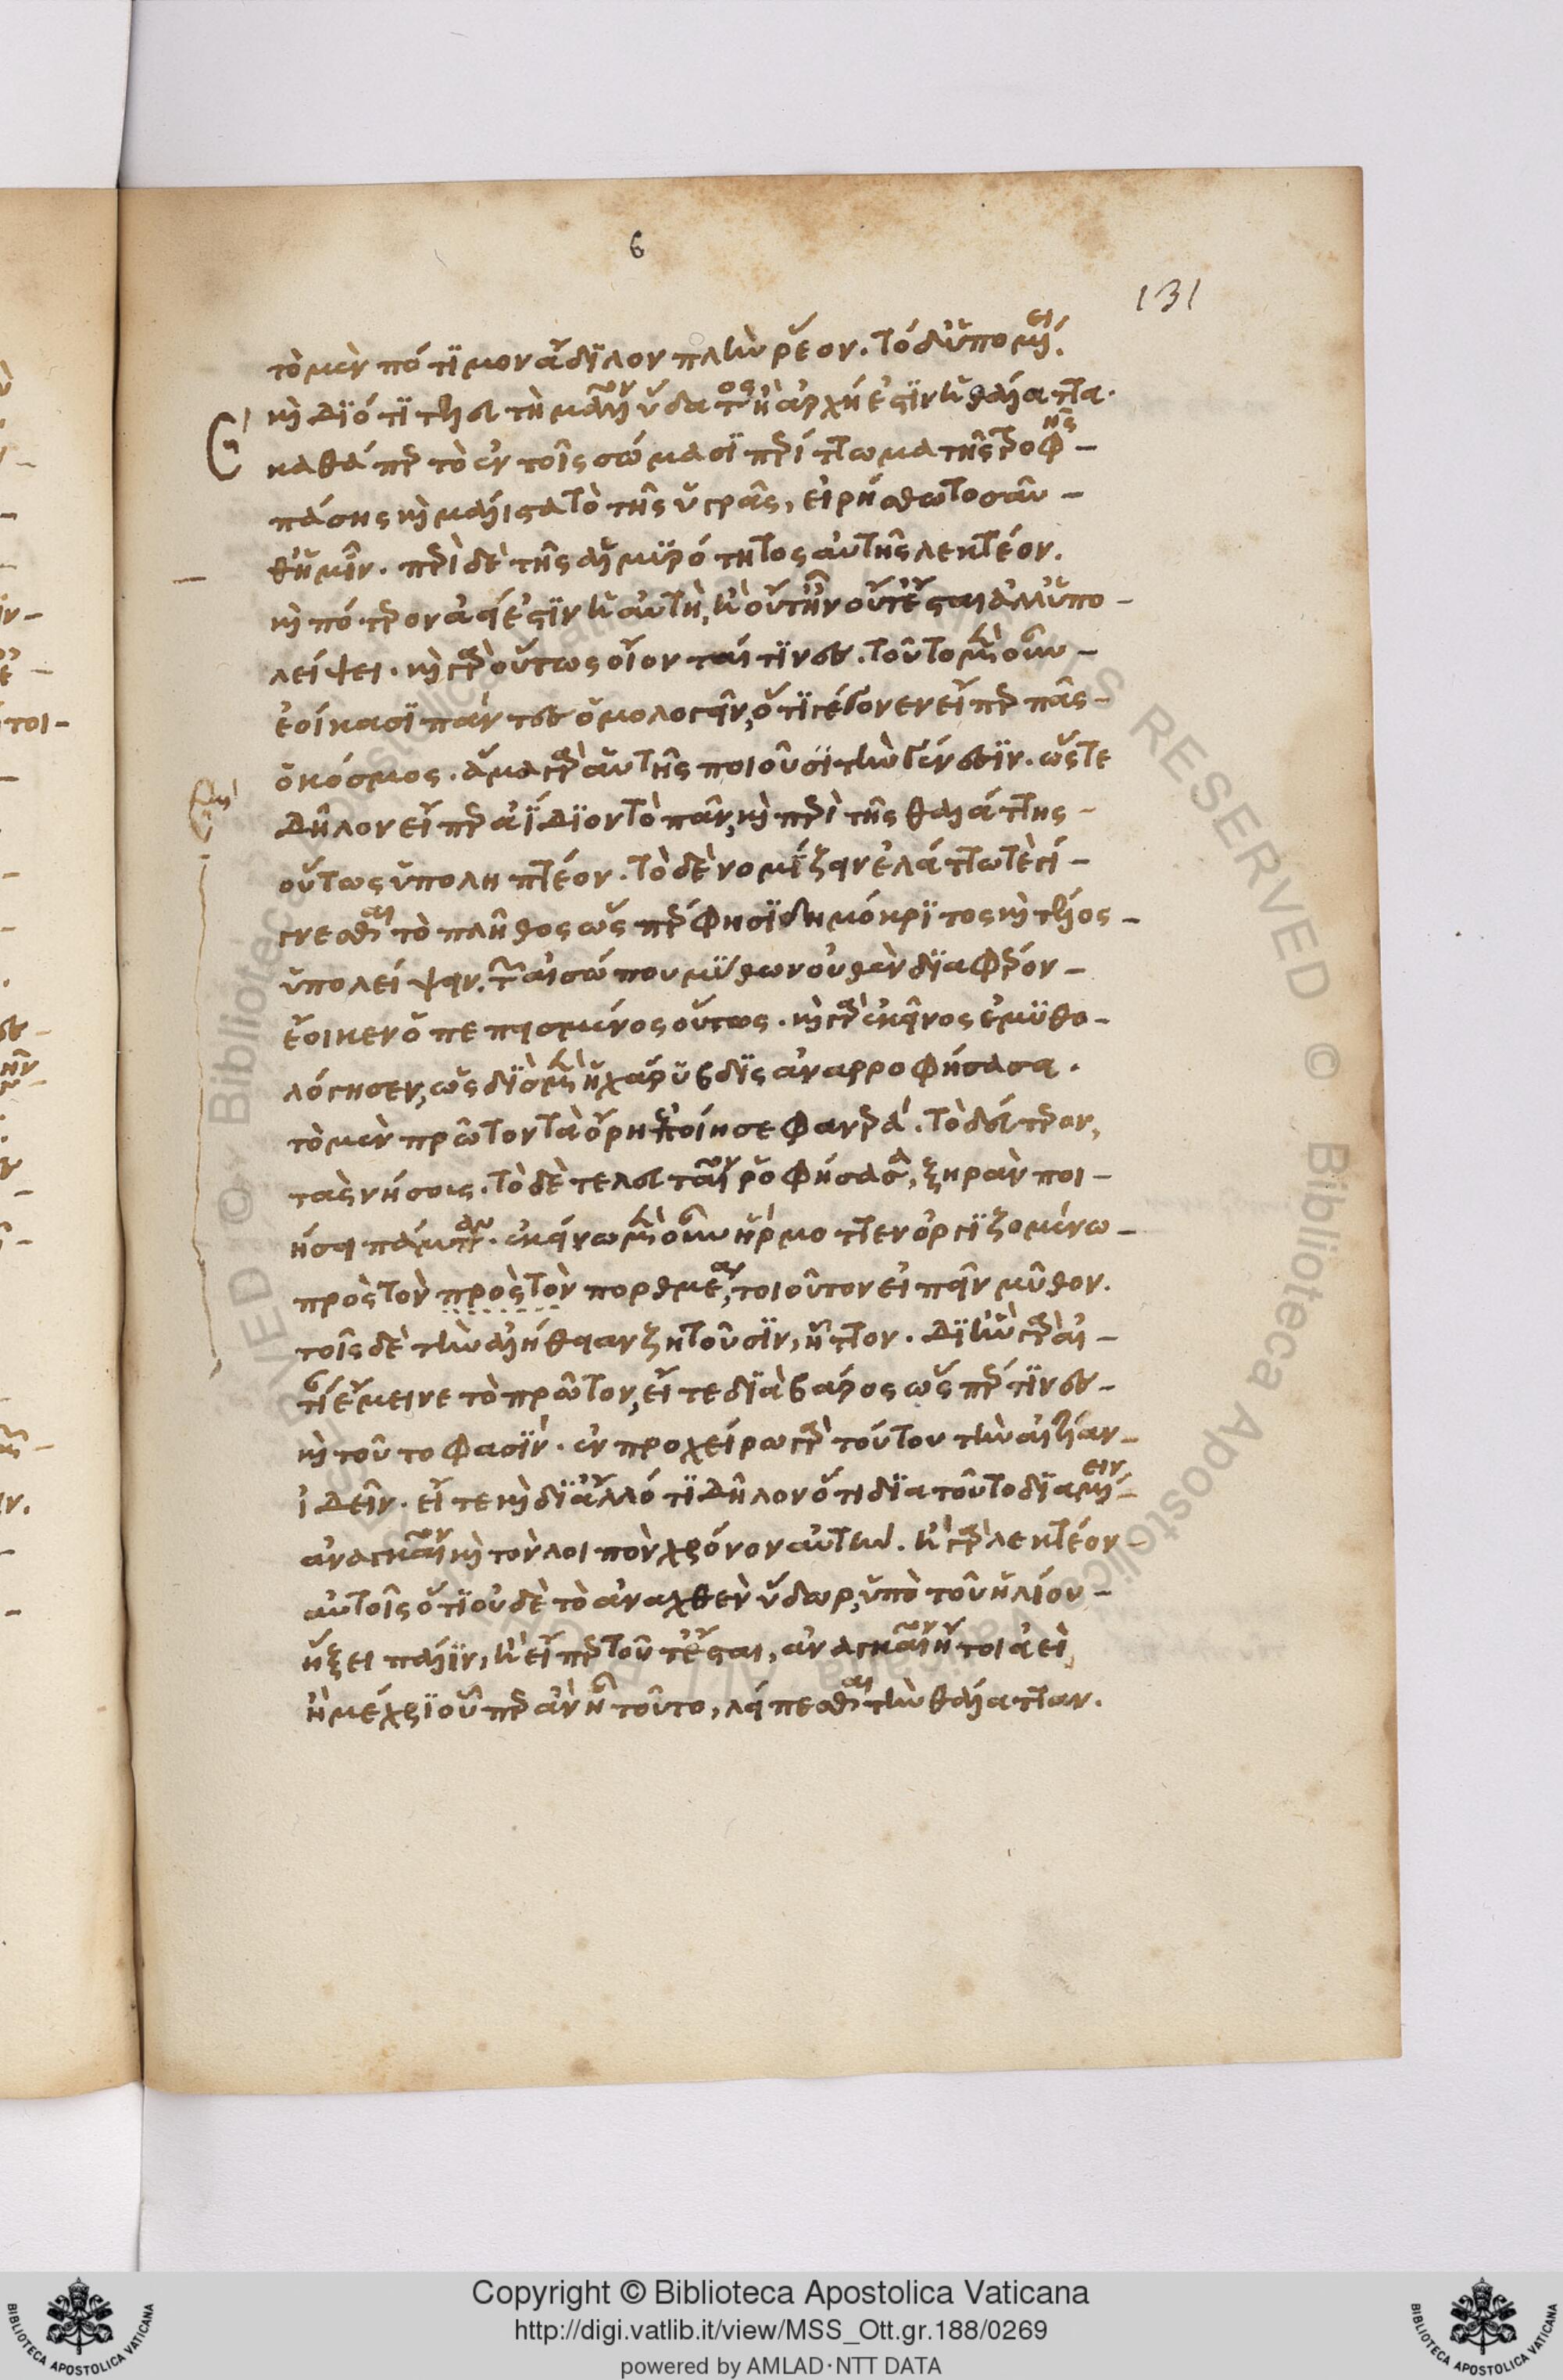 6
131
τὸ μὲν πότιμον ἄδηλον πλὴν ῥέον. τὸ δ' ὑπομένει
καὶ διό τι τελευτὴ μᾶλλον ὕδατος ἢ ἀρχή ἐστιν ἡ θάλαττα.
καθάπερ τὸ ἐν τοῖς σώμασι περίττωμα τῆς τροφῆς
πάσης καὶ μάλιστα τὸ τῆς ὑγρᾶς, εἰρήσθω τοσαῦ
θ' ἡμῖν. περὶ δὲ τῆς ἁλμυρότητος αὐτῆς λεκτέον.
καὶ πότερον ἀεί ἐστιν ἡ αὐτὴ, ἢ οὔτ' ἦν οὔτ' ἔσται ἀλλ' ὑπο
λείψει. καὶ γὰρ οὕτως οἴονταί τινες. τοῦτο μὲν οὖν
ἐοίκασι πάντες ὁμολογεῖν, ὅτι γέγονεν εἴπερ πᾶς
ὁ κόσμος. ἅμα γὰρ αὐτῆς ποιοῦσι τὴν γένεσιν. ὥστε
δῆλον εἴπερ ἀΐδιον τὸ πᾶν, καὶ περὶ τῆς θαλάττης
οὕτως ὑποληπτέον. τὸ δὲ νομίζειν ἐλάττω τε γί
γνεσθαι τὸ πλῆθος ὥσπερ φησὶ δημόκριτος καὶ τέλος
ὑπολείψειν. τῶν αἰσώπου μύθων οὐθὲν διαφέρον
ἔοικεν ὁ πεπεισμένος οὕτως. καὶ γὰρ ἐκεῖνος ἐμυθο
λόγησεν, ὡς δὶς μὲν ἡ χάρυβδις ἀναρροφήσασα.
τὸ μὲν πρῶτον τὰ ὄρη ἐποίησε φανερά. τὸ δεύτερον,
τὰς νήσους. τὸ δὲ τελευταῖον ῥοφήσασα, ξηρὰν ποι
ήσει πάμπαν. ἐκείνῳ μὲν οὖν ἥρμοττεν ὀργιζομένῳ
πρὸς τὸν πρὸς τὸν πορθμέαν, τοιοῦτον εἰπεῖν μῦθον.
τοῖς δὲ τὴν ἀλήθειαν ζητοῦσιν, ἧττον. δι' ἣν γὰρ αἰ
τίαν ἔμεινε τὸ πρῶτον, εἴτε διὰ βάρος ὥσπερ τινὲς
καὶ τοῦτο φασίν. ἐν προχείρῳ γὰρ τούτου τὴν αἰτίαν
ἰδεῖν. εἴτε καὶ δι' ἄλλό τι δῆλον ὅτι διὰ τοῦτο διαμένειν
ἀναγκαῖον καὶ τὸν λοιπὸν χρόνον αὐτήν. ἢ γὰρ λεκτέον
αὐτοῖς ὅτι οὐδὲ τὸ ἀναχθὲν ὕδωρ, ὑπὸ τοῦ ἡλίου
ἥξει πάλιν, ἢ εἴπερ τοῦτ' ἔσται, ἀναγκαῖον ἤτοι ἀεὶ,
ἢ μέχρι οὗπερ ἂν ᾖ τοῦτο, λείπεσθαι τὴν θάλατταν.
Copyright © Biblioteca Apostolica Vaticana
http://digi.vatlib.it/view/MSS_Ott.gr.188/0269
powered by AMLAD·NTT DATA